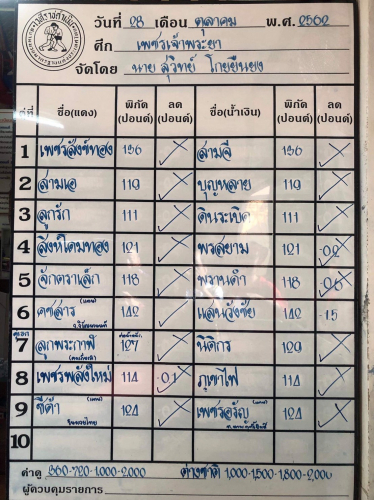 วันที่ 28 เดือน ตุลาคม พ.ศ. 2562
ศึก เพชรเจ้าพระยา
จัดโดย นาย สุวิทย์ โกยยืนยง
คู่ที่ ชื่อ(แดง) พิกัด (ปอนด์) ลด (ปอนด์) ชื่อ(น้ำเงิน) พิกัด (ปอนด์) ลด (ปอนด์)
1 เพชรสังข์ทอง 136 สามจี 136
2 สามเอ 119 บุญหลาย 119
3 ลูกรัก 111 ดินระเบิด 111
4 สิงห์โดมทอง 121 พรสยาม 121 .02
5 จักดาวเล็ก 118 พรานดำ 118
6 คชสาร (แทน) 142 แสนวังชัย 142 .15
คู่เอก
7 ลูกพระกาฬ 127 นิติกร 129
8 เพชรพลังใหม่ 114 .01 ภูเขาไฟ 114
9 ซีด้า (แทน) 124 เพชรอรัญ (แทน) 124
10
ค่าดู 360-720-1,000-2,000 ต่างชาติ 1,000-1,500-1,800-2,000
ผู้ควบคุมรายการ